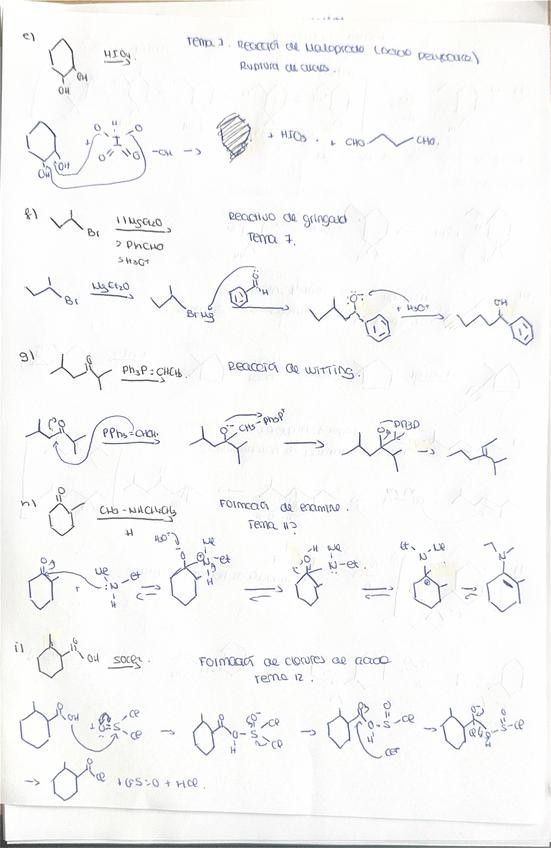 e)
OH
OH
HIO4
Tema 7. Reacción de Malaprade (ácido peryódico)
Ruptura de dioles.
OH
OH
O
H
O
I
O
O
-OH
+ HIO3 . + CHO
CHO.
f)
Br
1) Mg Et2O
2 PhCHO
3 H3O+
Reactivo de gringard
Tema 7.
Br
Mg Et2O
BrMg
O
H
O
+ H3O+
OH
g)
O
Ph3P = CHCH3
Reacción de witting.
O
PPh3=CHCH3
O-
CH3 - Ph3P+
O
h)
O
CH3-NHCH2CH3
H
Formación de enamina.
Tema 11?
O
+
Me
N
Et
H
H3O+
O
Me
N
Et
H
O
H
Me
N-Et.
Et
Me
N
N
i)
O
OH
SOCl2
Formación de cloruros de ácido
Tema 12.
O
OH
+
O
S
Cl
Cl
O
O
H
S
Cl
Cl
O
O
H
S
O
Cl
Cl-
O
Cl
O
H
S
O
Cl
O
Cl
+ O=S=O + HCl.